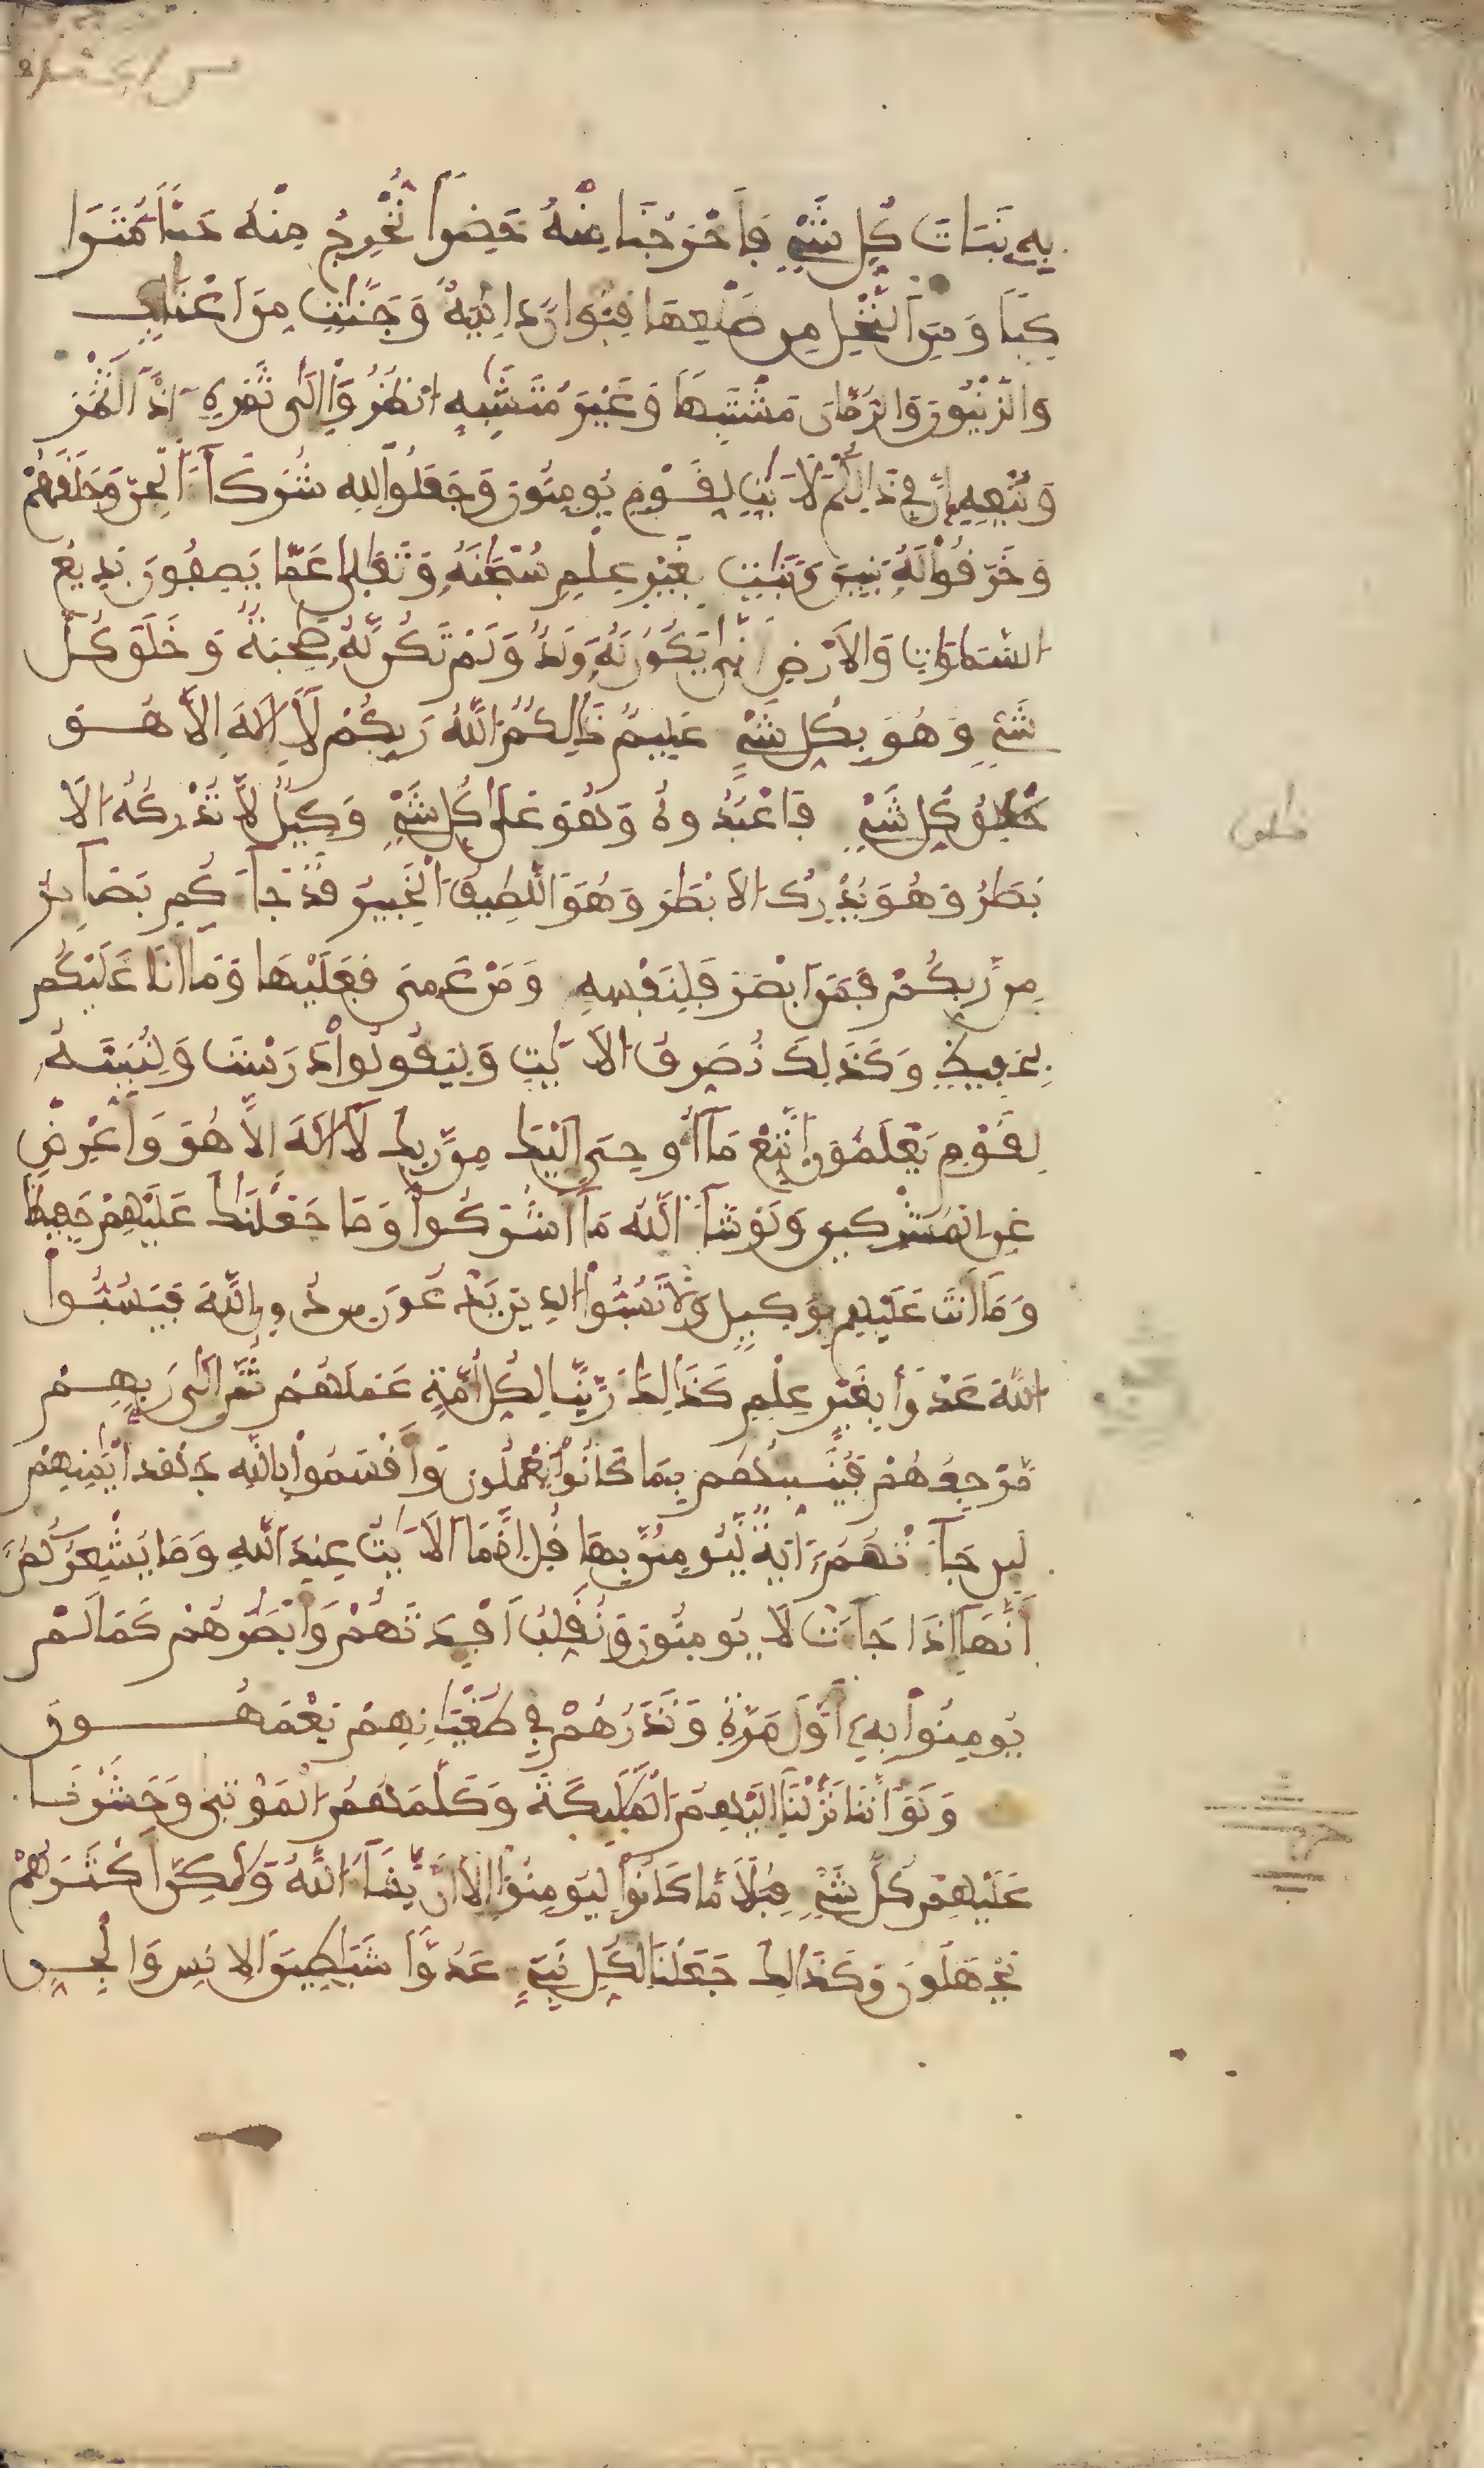 بِهِ نَبَاتَ كُلِّ شَيْءٍ فَأَخْرَجْنَا مِنْهُ خَضِرًا نُّخْرِجُ مِنْهُ حَبًّا مُّتَرَا
كِبًا وَمِنَ النَّخْلِ مِن طَلْعِهَا قِنْوَانٌ دَانِيَةٌ وَجَنَّٰتٍ مِّنَ اعْنَابٍ
وَالزَّيْتُونَ وَالرُّمَّانَ مُشْتَبِهًا وَغَيْرَ مُتَشَٰبِهٍ انظُرُوا إِلَىٰ ثَمَرِهِ إِذَا أَثْمَرَ
وَيَنْعِهِ إِنَّ فِي ذَٰلِكُمْ لَأَيَٰتٍ لِّقَوْمٍ يُومِنُونَ وَجَعَلُوا لِلهِ شُرَكَآءَ الْجِنَّ وَخَلَقَهُمْ
وَخَرَّقُوا لَهُ بَنِينَ وَبَنَٰتٍ بِغَيْرِ عِلْمٍ سُبْحَٰنَهُ وَتَعَٰلَىٰ عَمَّا يَصِفُونَ بَدِيعُ
السَّمَٰوَٰتِ وَالَارْضِ أَنَّىٰ يَكُونُ لَهُ وَلَدٌ وَلَمْ تَكُن لَّهُ صَٰحِبَةٌ وَخَلَقَ كُلَّ
شَيْءٍ وَهُوَ بِكُلِّ شَيْءٍ عَلِيمٌ ذَٰلِكُمُ اللَّهُ رَبُّكُمْ لَا إِلَٰهَ إِلَّا هُوَ
خَٰلِقُ كُلِّ شَيْءٍ فَاعْبُدُوهُ وَهُوَ عَلَىٰ كُلِّ شَيْءٍ وَكِيلٌ لَّا تُدْرِكُهُ الَا
بْصَٰرُ وَهُوَ يُدْرِكُ الَابْصَٰرَ وَهُوَ اللَّطِيفُ الْخَبِيرُ قَدْ جَآءَكُم بَصَآئِرُ
مِن رَّبِّكُمْ فَمَنَ ابْصَرَ فَلِنَفْسِهِ وَمَنْ عَمِيَ فَعَلَيْهَا وَمَا أَنَا عَلَيْكُم
بِحَفِيظٍ وَكَذَٰلِكَ نُصَرِّفُ الَايَٰتِ وَلِيَقُولُوا دَرَسْتَ وَلِنُبَيِّنَهُ
لِقَوْمٍ يَعْلَمُونَ اتَّبِعْ مَا أُوحِيَ إِلَيْكَ مِن رَّبِّكَ لَا إِلَٰهَ إِلَّا هُوَ وَأَعْرِضْ
عَنِ الْمُشْرِكِينَ وَلَوْ شَآءَ اللَّهُ مَا أَشْرَكُوا وَمَا جَعَلْنَٰكَ عَلَيْهِمْ حَفِيظًا
وَمَا أَنتَ عَلَيْهِم بِوَكِيلٍ وَلَا تَسُبُّوا الذِينَ يَدْعُونَ مِن دُونِ اللَّهِ فَيَسُبُّوا
اللَّهَ عَدْوًا بِغَيْرِ عِلْمٍ كَذَٰلِكَ زَيَّنَّا لِكُلِّ أُمَّةٍ عَمَلَهُمْ ثُمَّ إِلَىٰ رَبِّهِم
مَّرْجِعُهُمْ فَيُنَبِّئُهُم بِمَا كَانُوا يَعْمَلُونَ وَأَقْسَمُوا بِاللَّهِ جَهْدَ أَيْمَٰنِهِمْ
لَئِن جَآءَتْهُمُ ءَايَةٌ لَّيُومِنُنَّ بِهَا قُلِ انَّمَا الَايَٰتُ عِندَ اللَّهِ وَمَا يُشْعِرُكُمُ
أَنَّهَا إِذَا جَآءَتْ لَا يُومِنُونَ وَنُقَلِّبُ أَفْـِٔدَتَهُمْ وَأَبْصَٰرَهُمْ كَمَا لَمْ
يُومِنُوا بِهِ أَوَّلَ مَرَّةٍ وَنَذَرُهُمْ فِي طُغْيَٰنِهِمْ يَعْمَهُونَ
وَلَوْ أَنَّنَا نَزَّلْنَا إِلَيْهِمُ الْمَلَٰئِكَةَ وَكَلَّمَهُمُ الْمَوْتَىٰ وَحَشَرْنَا
عَلَيْهِمْ كُلَّ شَيْءٍ قِبَلًا مَّا كَانُوا لِيُومِنُوا إِلَّا أَن يَشَآءَ اللَّهُ وَلَٰكِنَّ أَكْثَرَهُمْ
يَجْهَلُونَ وَكَذَٰلِكَ جَعَلْنَا لِكُلِّ نَبِيءٍ عَدُوًّا شَيَٰطِينَ الِانسِ وَالْجِنِّ